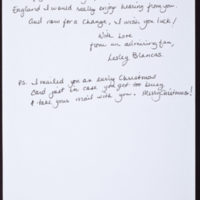 England I would really enjoy hearing from you.
And now for a change, I wish you luck!
With Love
from an admiring fan,
Lesley Blancas
P.S. I mailed you an early Christmas
Card just in case you get too busy
& take your mail with you. Merry Christmas!